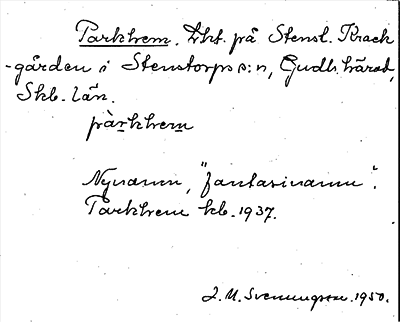 Parkhem. Lht. på Stensl. Krack
-gården i Stenstorps s:n, Gudh. härad,
Skb. län.
pàrkhem
Nynamn, "fantasinamn".
Parkhem kb. 1937.
J. M. Svenungsson. 1950.